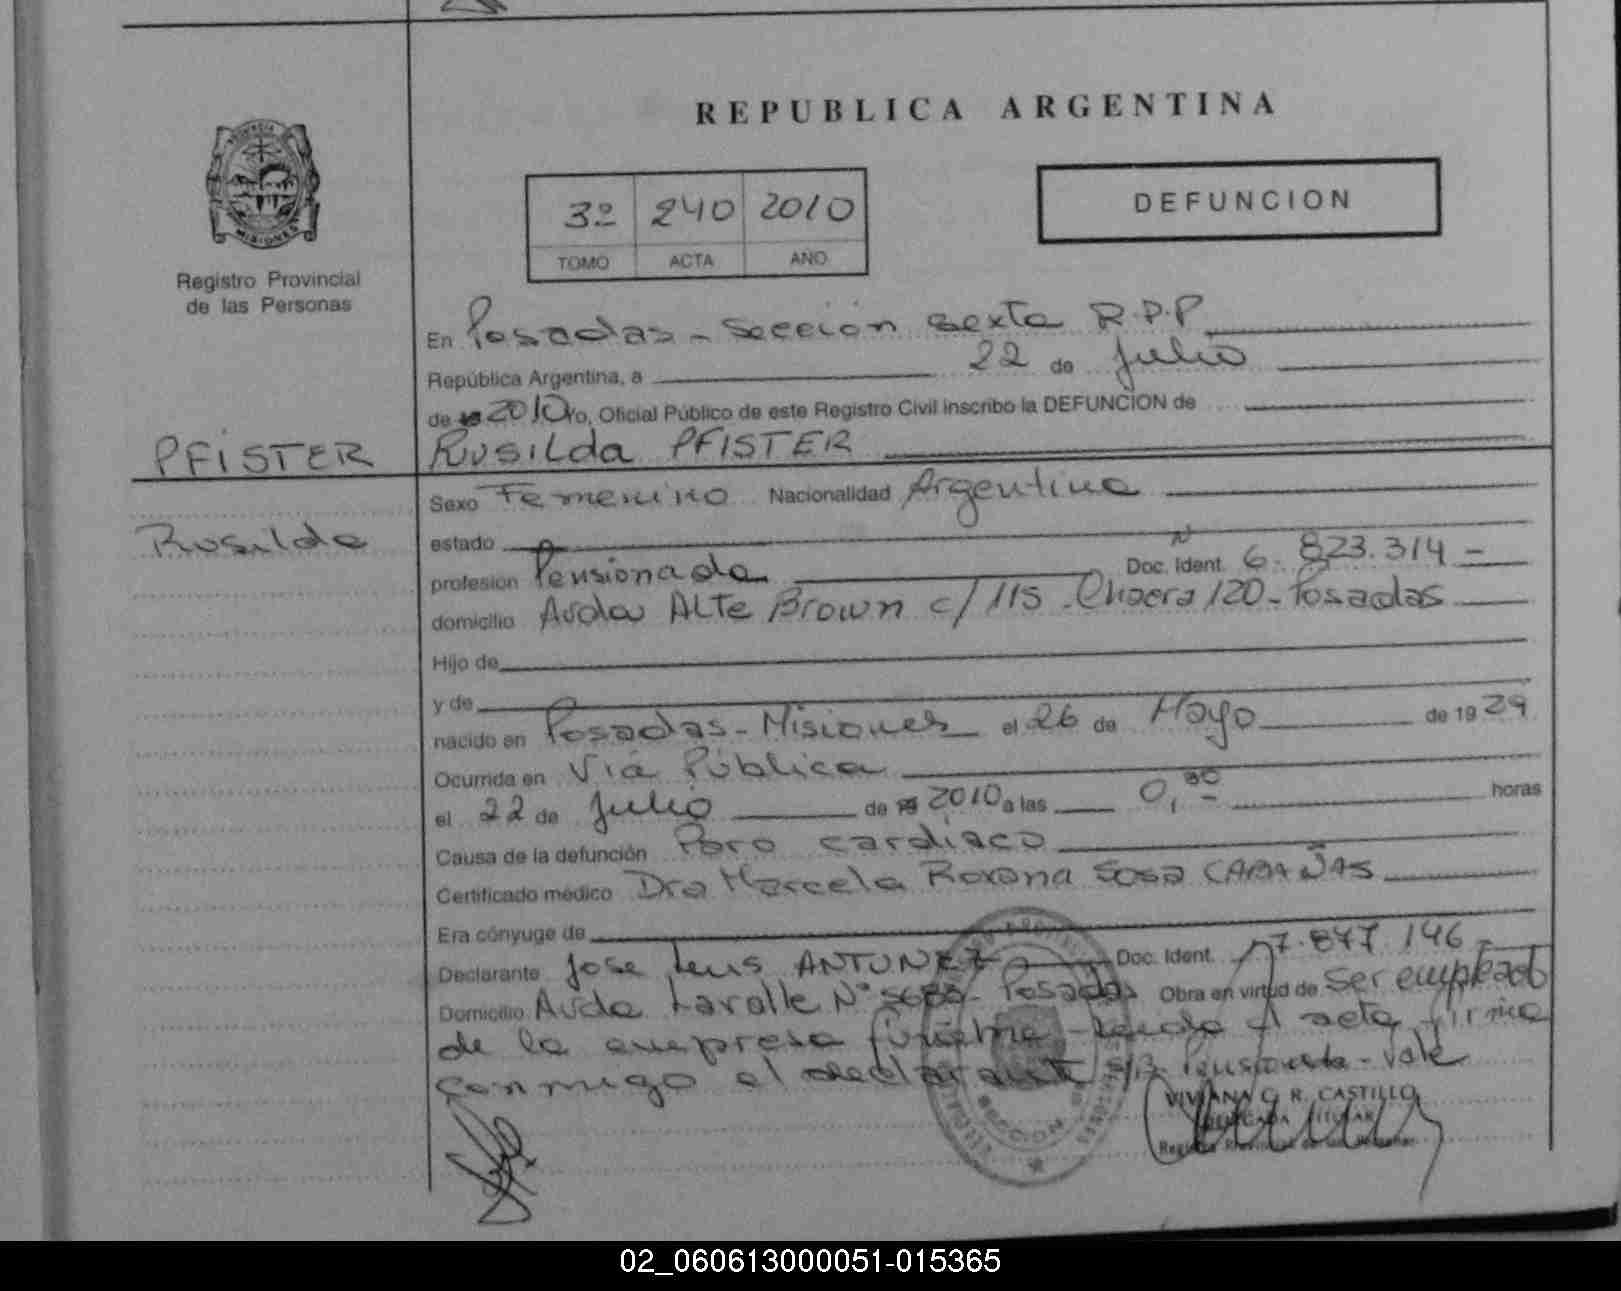 REPUBLICA ARGENTINA
PROVINCIA
MISIONES
Registro Provincial
de las Personas
3º 240 2010
TOMO ACTA AÑO
DEFUNCION
En Posadas - Sección sexta R.P.P
República Argentina, a 22 de Julio
de 2010 Yo, Oficial Público de este Registro Civil inscribo la DEFUNCION de
PFISTER
Rusilda PFISTER
Rusilda
Sexo Femenino Nacionalidad Argentina
estado
profesion Pensionada Doc. Ident. N 6.823.314 -
domicilio Avda ALTE Brown c/ 115 Chacra 120 - Posadas
Hijo de
y de
nacido en Posadas - Misiones el 26 de Mayo de 1929
Ocurrida en Vía Pública
el 22 de Julio de 2010 a las 0,30 horas
Causa de la defunción Paro cardiaco
Certificado médico Dra Marcela Roxana Sosa CABAÑAS
Era cónyuge de
Declarante Jose Luis ANTUNEZ Doc. Ident. 17.847.146 -
Domicilio Avda Lavalle Nº - Posadas Obra en virtud de ser empleado
de la empresa fúnebre - Leida el acta firma
conmigo el declarante s/r Pensionada - Vale
VIVIANA G. R. CASTILLO
DELEGADA TITULAR
Registro Provincial de las Personas
SECCION
02_060613000051-015365